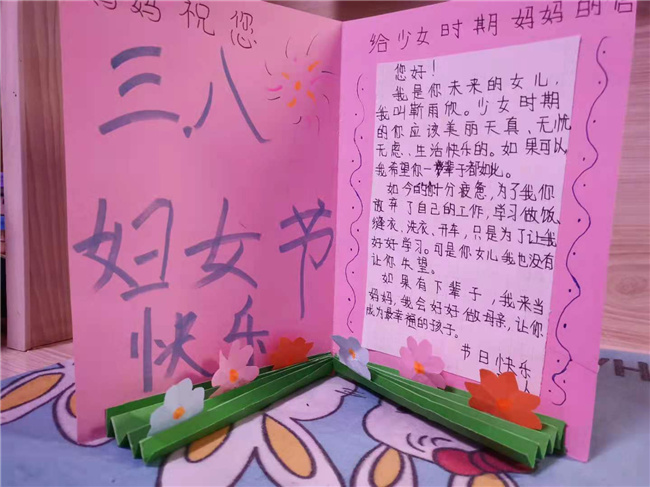 妈妈祝您
三.八
妇女节
快乐
给少女时期妈妈的信
您好！
我是你未来的女儿，
我叫靳雨欣。少女时期
的你应该美丽天真、无忧
无虑、生活快乐的。如果可以，
我希望你一辈子都如此。
如今的你十分疲惫，为了我你
放弃了自己的工作，学习做饭、
缝衣、洗衣、开车，只是为了让我
好好学习。可是你女儿我也没有
让你失望。
如果有下辈子，我来当
妈妈，我会好好做母亲，让你
成为最幸福的孩子。
节日快乐